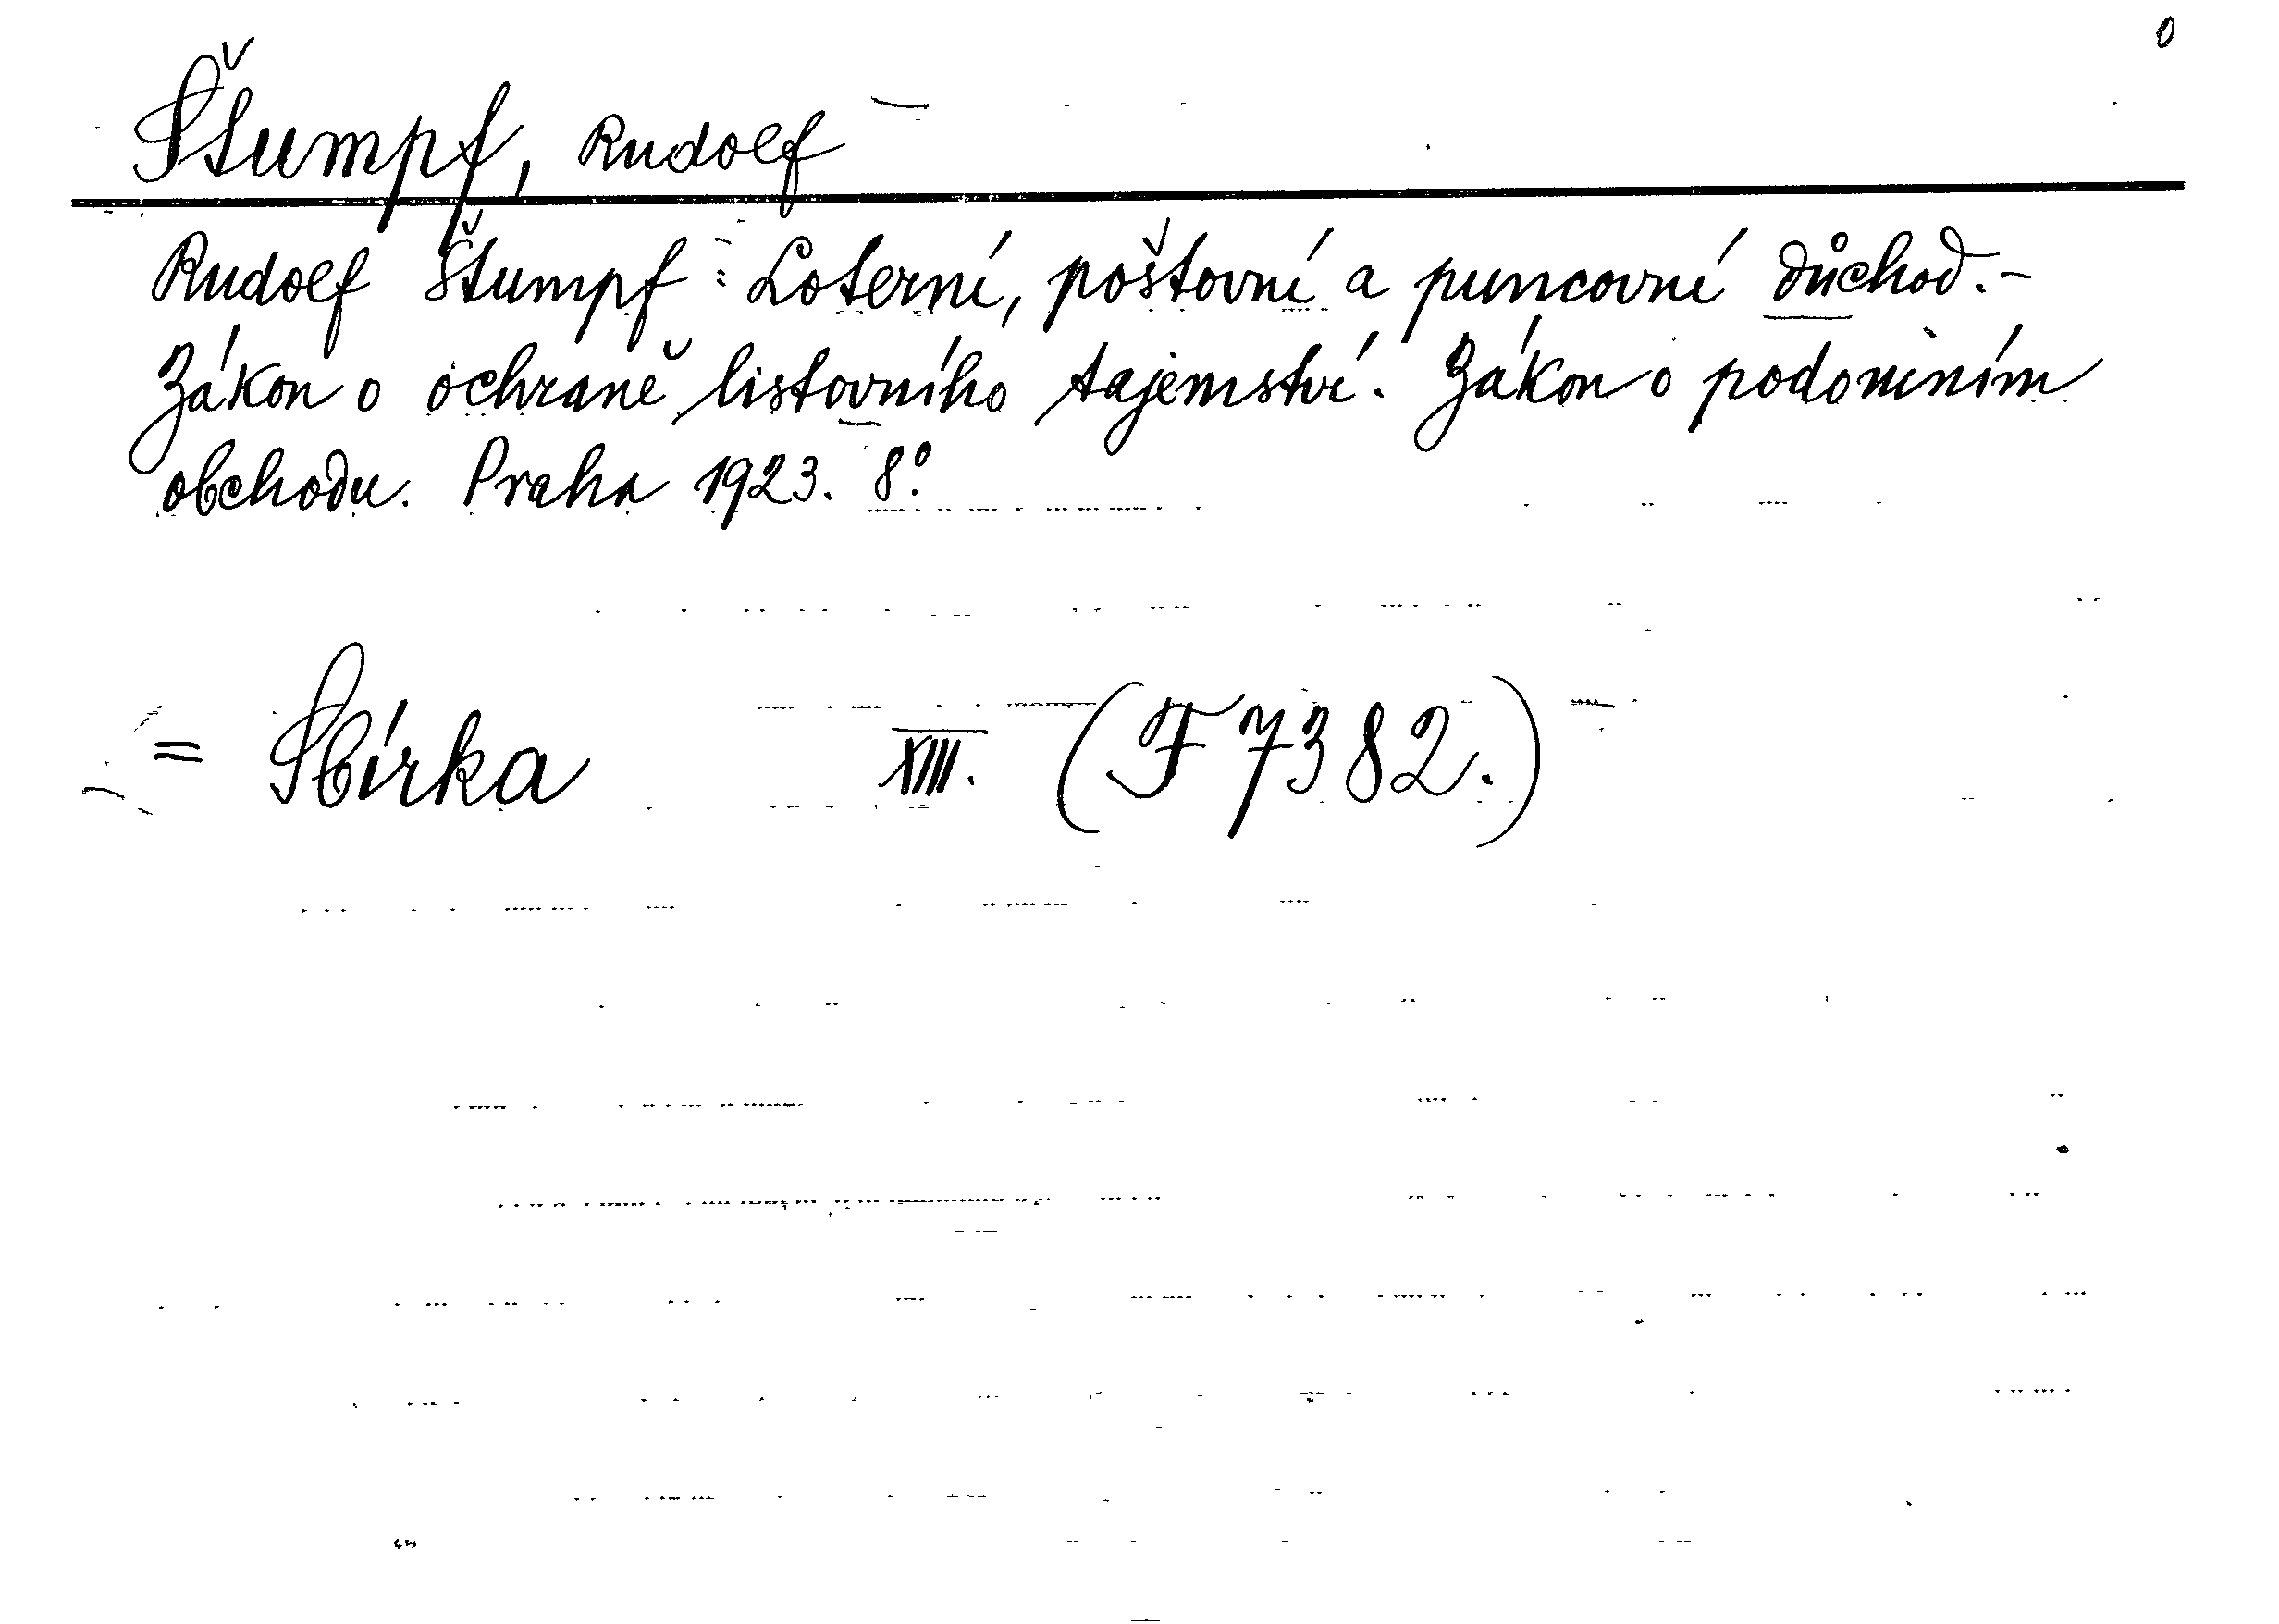 0
Štumpf, Rudolf
Rudolf Štumpf: Loterní, poštovní a puncovní důchod.-
Zákon o ochraně listovního tajemství. Zákon o podomním
obchodu. Praha 1923. 8°.
= Sbírka XIII. (F 7382.)